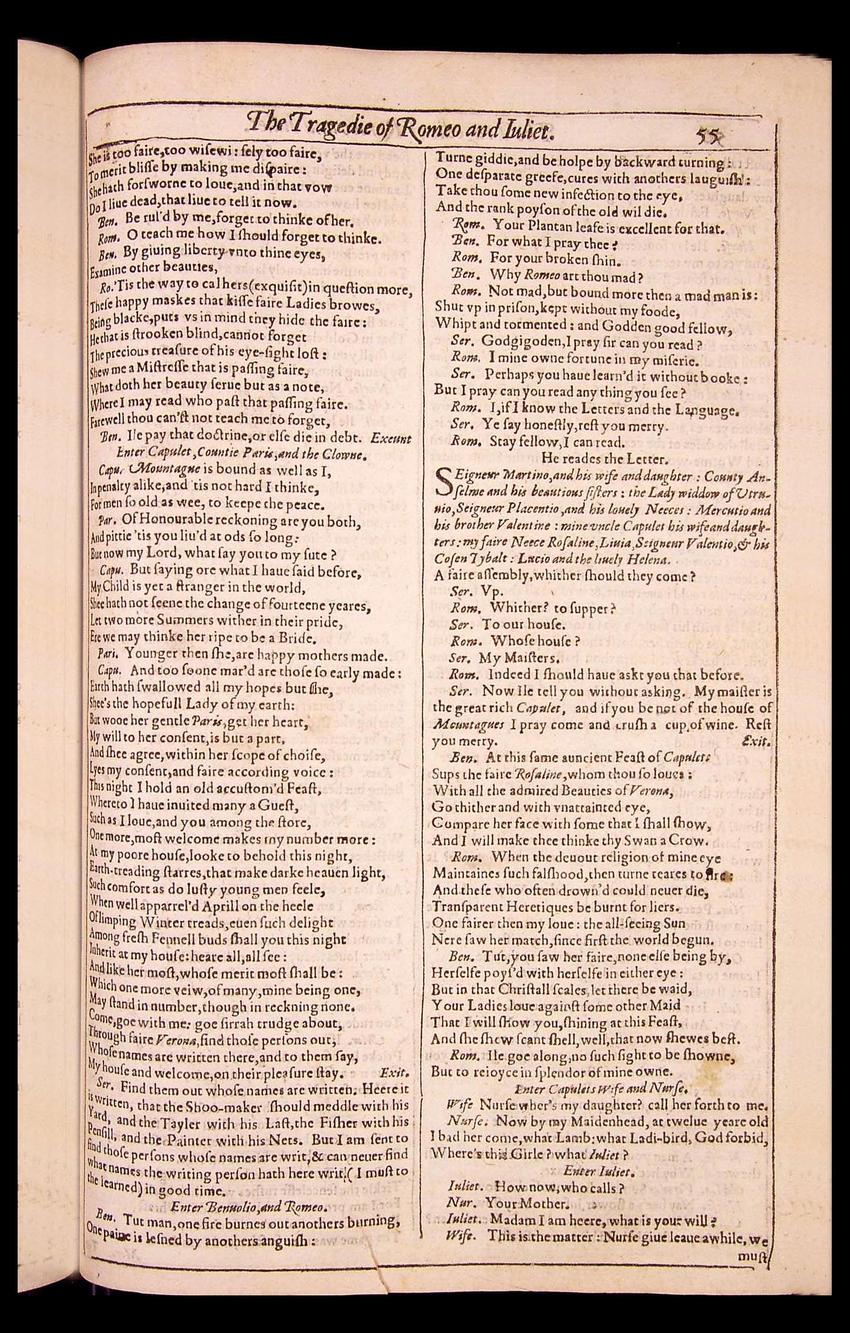 The Tragedie of Romeo and Iuliet. 55
She is too faire, too wisewi: sely too faire,
To merit blisse by making me dispaire:
She hath forsworne to loue, and in that vow
Do I liue dead, that liue to tell it now.
Ben. Be rul'd by me, forget to thinke of her.
Rom. O teach me how I should forget to thinke.
Ben. By giuing liberty vnto thine eyes,
Examine other beauties,
Ro. 'Tis the way to cal hers (exquisit) in question more,
These happy maskes that kisse faire Ladies browes,
Being blacke, puts vs in mind they hide the faire:
He that is strooken blind, cannot forget
The precious treasure of his eye-sight lost:
Shew me a Mistresse that is passing faire,
What doth her beauty serue but as a note,
Where I may read who past that passing faire.
Farewell thou can'st not teach me to forget,
Ben. Ile pay that doctrine, or else die in debt. Exeunt
Enter Capulet, Countie Paris, and the Clowne.
Capu. Mountague is bound as well as I,
In penalty alike, and 'tis not hard I thinke,
For men so old as wee, to keepe the peace.
Par. Of Honourable reckoning are you both,
And pittie 'tis you liu'd at ods so long:
But now my Lord, what say you to my sute?
Capu. But saying ore what I haue said before,
My Child is yet a stranger in the world,
Shee hath not seene the change of fourteene yeares,
Let two more Summers wither in their pride,
Ere we may thinke her ripe to be a Bride.
Pari. Younger then she, are happy mothers made.
Capu. And too soone mar'd are those so early made:
Earth hath swallowed all my hopes but she,
Shee's the hopefull Lady of my earth:
But wooe her gentle Paris, get her heart,
My will to her consent, is but a part,
And shee agree, within her scope of choise,
Lyes my consent, and faire according voice:
This night I hold an old accustom'd Feast,
Whereto I haue inuited many a Guest,
Such as I loue, and you among the store,
One more, most welcome makes my number more:
At my poore house, looke to behold this night,
Earth-treading starres, that make darke heauen light,
Such comfort as do lusty young men feele,
When well apparrel'd Aprill on the heele
Of limping Winter treads, euen such delight
Among fresh Fennell buds shall you this night
Inherit at my house: heare all, all see:
And like her most, whose merit most shall be:
Which one more veiw, of many, mine being one,
May stand in number, though in reckning none.
Come, goe with me: goe sirrah trudge about,
Through faire Verona, find those persons out,
Whose names are written there, and to them say,
My house and welcome, on their pleasure stay. Exit.
Ser. Find them out whose names are written. Heere it
is written, that the Shoo-maker should meddle with his
Yard, and the Tayler with his Last, the Fisher with his
Pensill, and the Painter with his Nets. But I am sent to
find those persons whose names are writ, & can neuer find
what names the writing person hath here writ (I must to
the learned) in good time.
Enter Benuolio, and Romeo.
Ben. Tut man, one fire burnes out anothers burning,
One paine is lesned by anothers anguish:
Turne giddie, and be holpe by backward turning:
One desparate greefe, cures with anothers lauguish:
Take thou some new infection to the eye,
And the rank poyson of the old wil die.
Rom. Your Plantan leafe is excellent for that.
Ben. For what I pray thee?
Rom. For your broken shin.
Ben. Why Romeo art thou mad?
Rom. Not mad, but bound more then a mad man is:
Shut vp in prison, kept without my foode,
Whipt and tormented: and Godden good fellow,
Ser. Godgigoden, I pray sir can you read?
Rom. I mine owne fortune in my miserie.
Ser. Perhaps you haue learn'd it without booke:
But I pray can you read any thing you see?
Rom. I, if I know the Letters and the Language.
Ser. Ye say honestly, rest you merry.
Rom. Stay fellow, I can read.
He reades the Letter.
SEigneur Martino, and his wife and daughter: County An-
selme and his beautious sisters: the Lady widdow of Vtru-
uio, Seigneur Placentio, and his louely Neeces: Mercutio and
his brother Valentine: mine vncle Capulet his wife and daugh-
ters: my faire Neece Rosaline, Liuia, Seigneur Valentio, & his
Cosen Tybalt: Lucio and the liuely Helena.
A faire assembly, whither should they come?
Ser. Vp.
Rom. Whither? to supper?
Ser. To our house.
Rom. Whose house?
Ser. My Maisters.
Rom. Indeed I should haue askt you that before.
Ser. Now Ile tell you without asking. My maister is
the great rich Capulet, and if you be not of the house of
Mountagues I pray come and crush a cup of wine. Rest
you merry. Exit.
Ben. At this same auncient Feast of Capulets
Sups the faire Rosaline, whom thou so loues:
With all the admired Beauties of Verona,
Go thither and with vnattainted eye,
Compare her face with some that I shall show,
And I will make thee thinke thy Swan a Crow.
Rom. When the deuout religion of mine eye
Maintaines such falshood, then turne teares to fire:
And these who often drown'd could neuer die,
Transparent Heretiques be burnt for liers.
One fairer then my loue: the all-seeing Sun
Nere saw her match, since first the world begun.
Ben. Tut, you saw her faire, none else being by,
Herselfe poys'd with herselfe in either eye:
But in that Christall scales, let there be waid,
Your Ladies loue against some other Maid
That I will show you, shining at this Feast,
And she shew scant shell, well, that now shewes best.
Rom. Ile goe along, no such sight to be showne,
But to reioyce in splendor of mine owne.
Enter Capulets Wife and Nurse.
Wife Nurse wher's my daughter? call her forth to me.
Nurse. Now by my Maidenhead, at twelue yeare old
I bad her come, what Lamb: what Ladi-bird, God forbid,
Where's this Girle? what Iuliet?
Enter Iuliet.
Iuliet. How now, who calls?
Nur. Your Mother.
Iuliet. Madam I am heere, what is your will?
Wife. This is the matter: Nurse giue leaue awhile, we
must